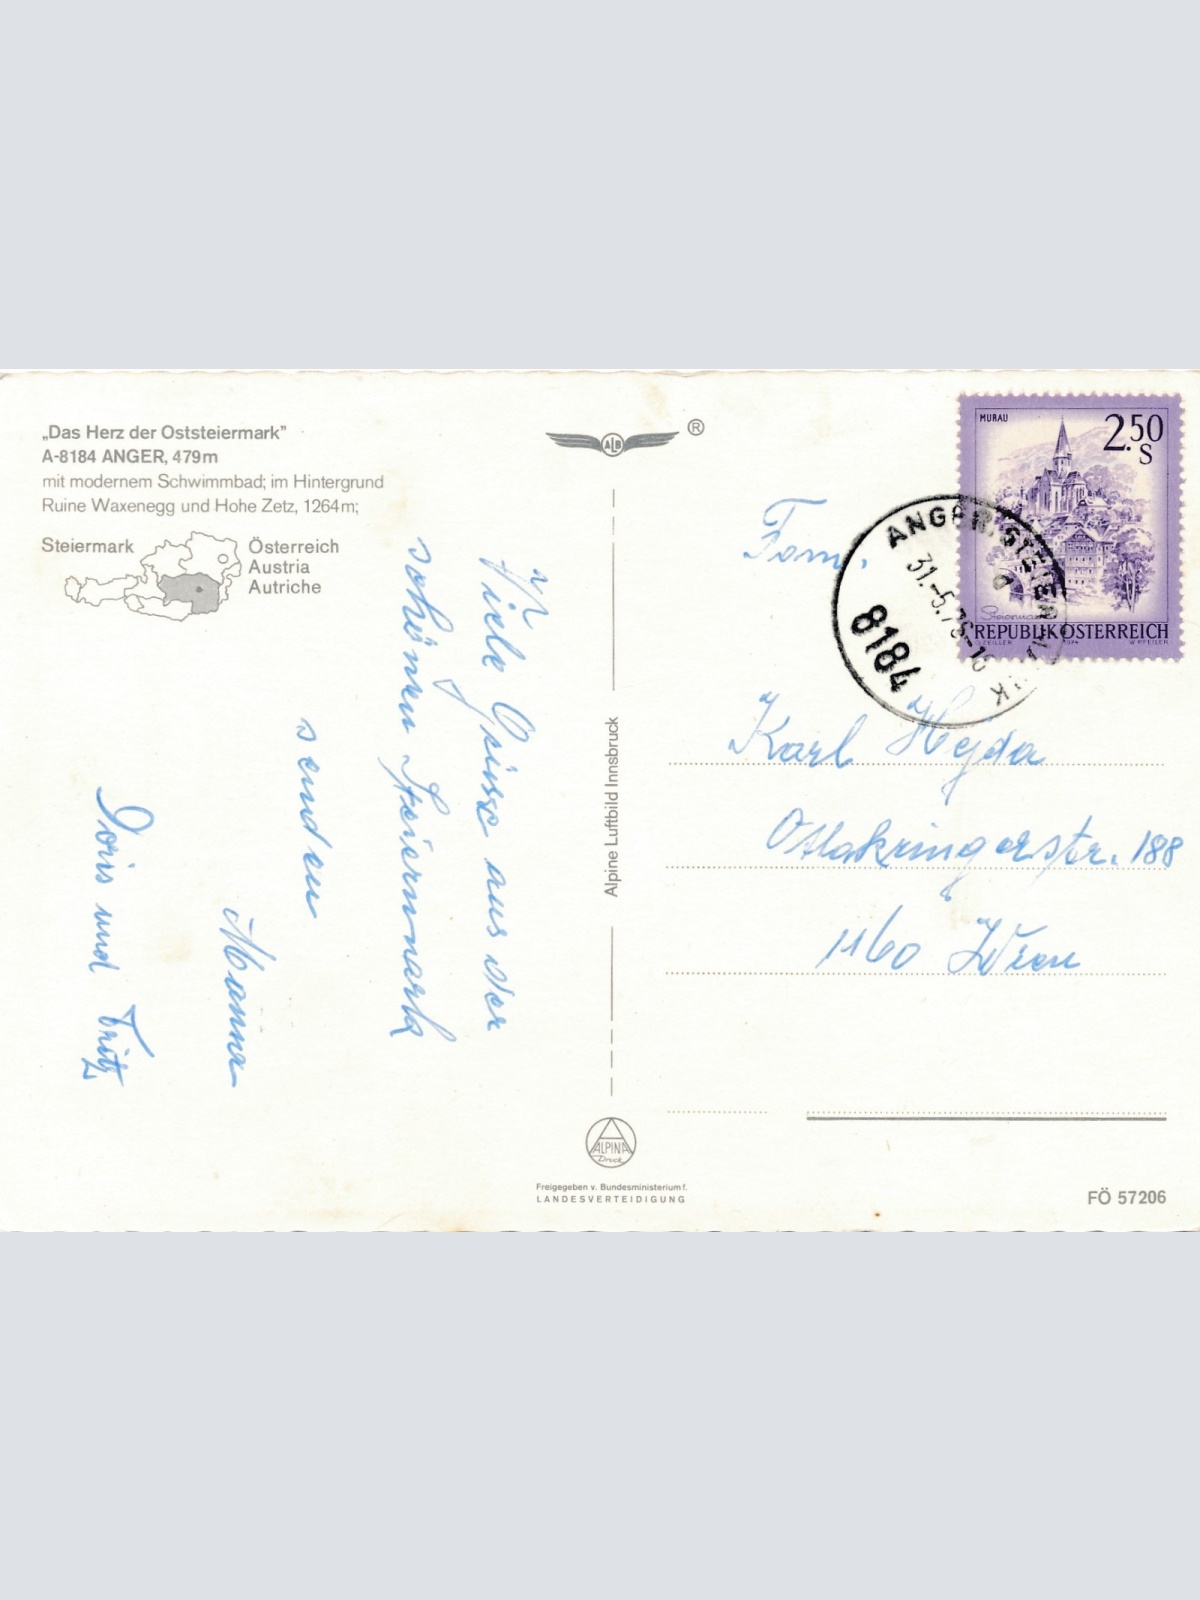 „Das Herz der Oststeiermark”
A-8184 ANGER, 479m
mit modernem Schwimmbad; im Hintergrund
Ruine Waxenegg und Hohe Zetz, 1264m;
Steiermark
Österreich
Austria
Autriche
Viele Grüsse aus der
schönen Steiermark
senden
Mama
Doris und Fritz
ALB
®
Alpine Luftbild Innsbruck
ALPINA
Druck
Freigegeben v. Bundesministerium f.
LANDESVERTEIDIGUNG
MURAU
2.50
S
Steiermark
REPUBLIK ÖSTERREICH
ZEILLER 1974 W. PFEILER
ANGER, STEIERMARK
8184
Fam.
Karl Hejda
Ottakringerstr. 188
1160 Wien
FÖ 57206